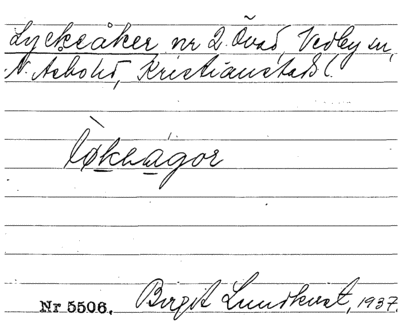 Lyckeåker nr 2. Övad, Vedby sn,
N. Åsbohd, Kristianstads l.
løkeågor
Nr 5506. Birgit Lundkvist, 1937.